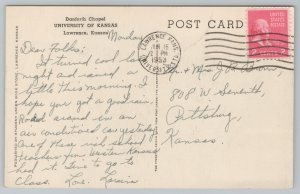 Danforth Chapel
UNIVERSITY OF KANSAS
Lawrence, Kansas
POST CARD
Monday
Dear Folks:
It turned cool last
night and rained a
little this morning. I
hope you got a good rain.
Rode around in an
air conditioned car yesterday.
One of these rich school
teachers from western Kansas
had it. Time to go to
Class. Love.
LAWRENCE, KANS.
JUN 15
PM
1953
Mr + Mrs J.
808 W Seventh,
Pittsburg,
Kansas.